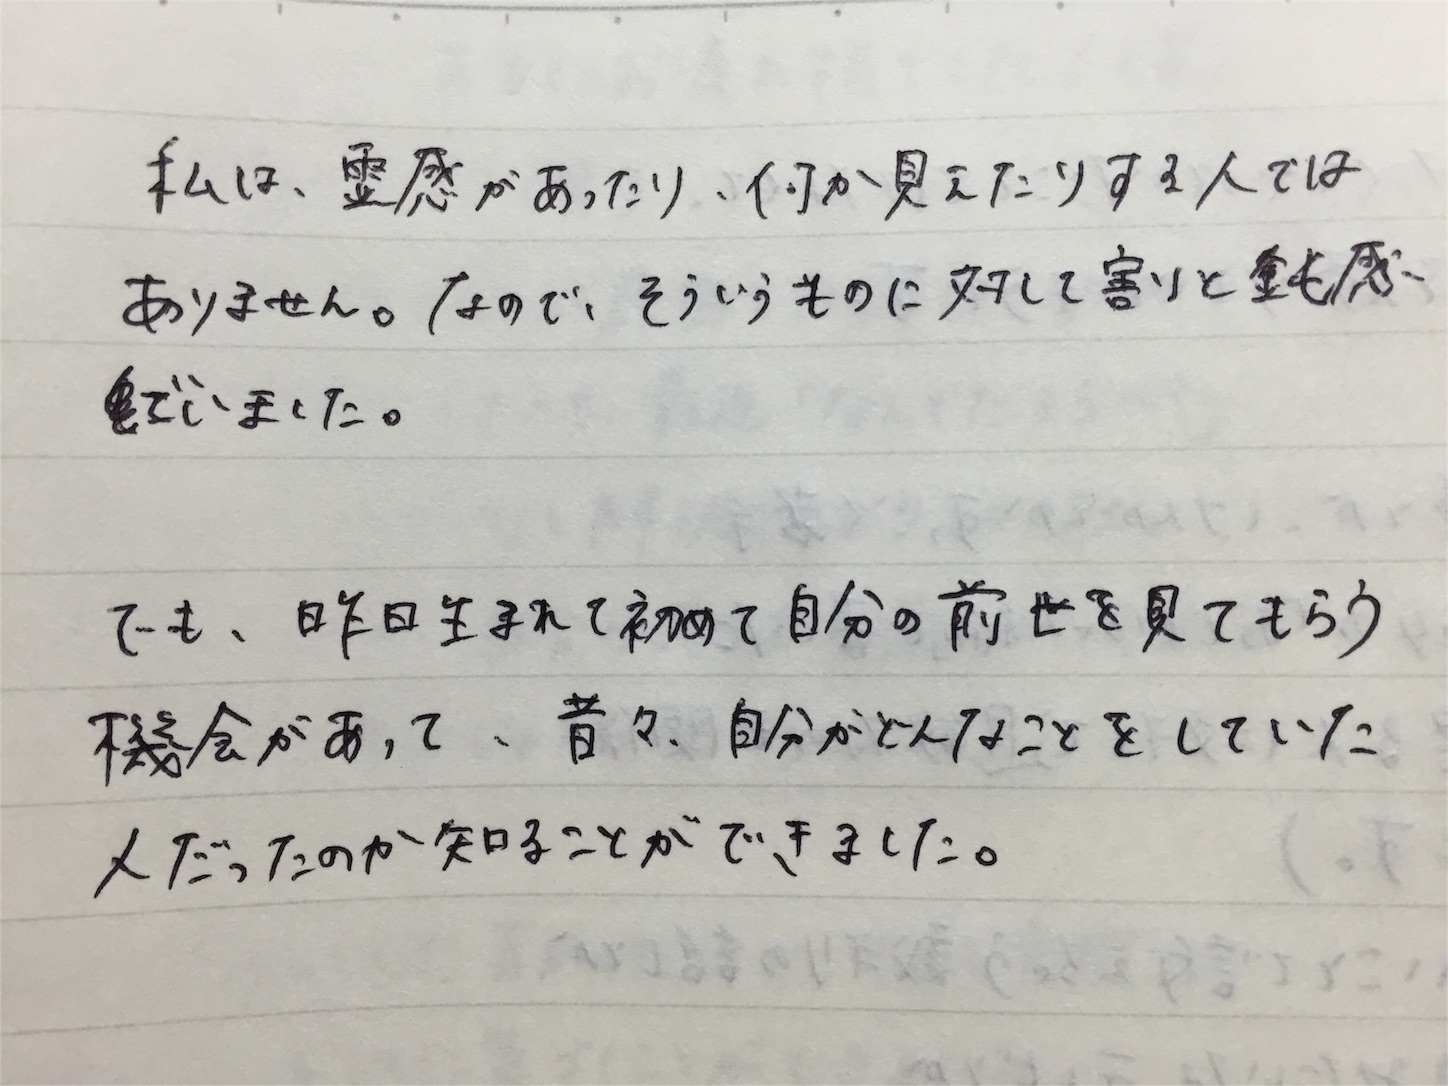 私は、霊感があったり、何か見えたりする人では
ありません。なので、そういうものに対して割りと鈍感
でいました。
でも、昨日生まれて初めて自分の前世を見てもらう
機会があって、昔々、自分がどんなことをしていた
人だったのか知ることができました。